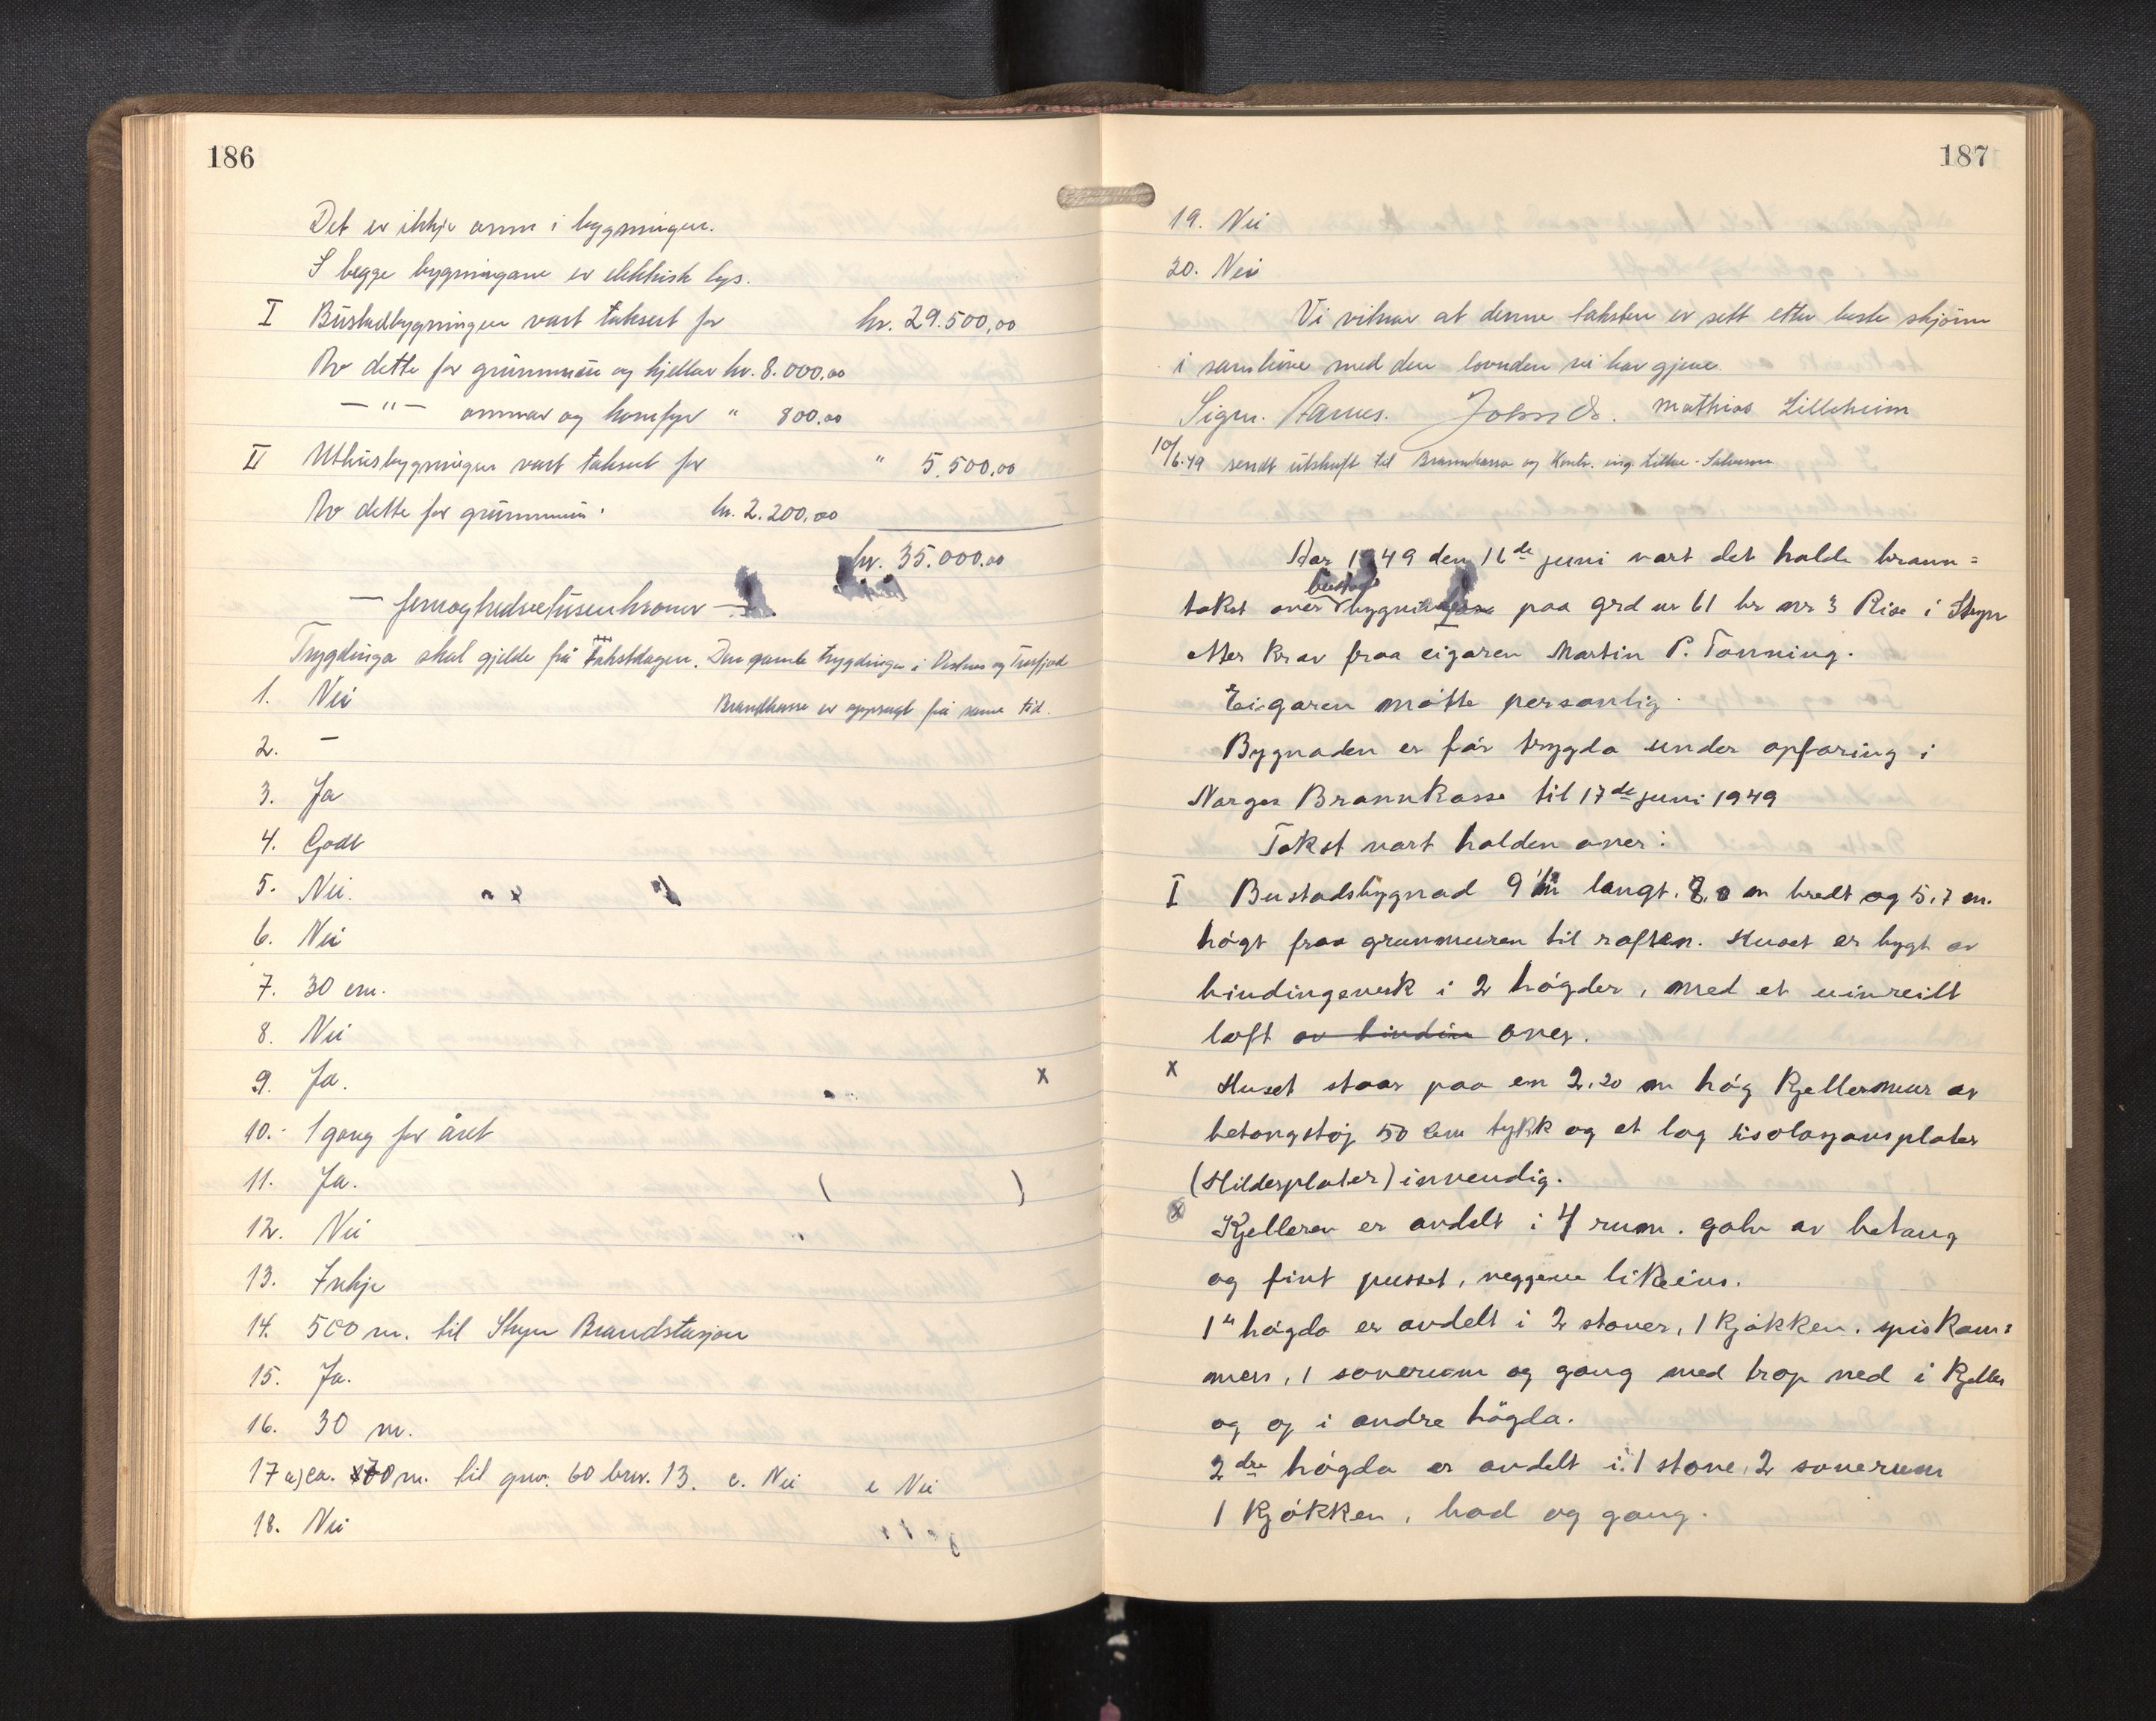 186
Det er ikkje omn i bygningen.
I begge bygningane er elektrisk lys.
I Bustadbygningen vart taksert for kr. 29.500,00
Av dette for grunnmur og kjellar kr. 8.000,00
— " — omnar og komfyr " 800,00
II Uthusbygningen vart taksert for " 5.500,00
Av dette for grunnmur kr. 2.200,00
kr. 35.000,00
— femoghedvetusenkroner —
Trygdinga skal gjelde frå takstdagen. Den gamle trygdingen i Vestnes og Tresfjord
Brandkasse er oppsagt frå same tid.
1. Nei
2. –
3. Ja
4. Godt
5. Nei.
6. Nei
7. 30 cm.
8. Nei
9. Ja. x
10. 1 gang for året
11. Ja. ( )
12. Nei
13. Inkje
14. 500 m. til Stryn Brandstasjon
15. Ja.
16. 30 m.
17 a) ca. 70 m. til gnr. 60 brn. 13. c. Nei e Nei
18. Nei
187
19. Nei
20. Nei
Vi vitnar at denne taksten er sett etter beste skjönn
i samhöve med den lovnden vi har gjeve.
Sign. Aarnes. Johs Mathias Lilleheim
10/6-49 sendt utskrift til Brannkassa og Kontr. ing. Litlue-Salvesen
Aar 1949 den 16de juni vart det halde brann=
takst over bustad bygningen paa grd nr 61 br nr 3 Rise i Stryn
etter krav fraa eigaren Martin P. Tonning.
Eigaren møtte personlig.
Bygnaden er før trygda under opføring i
Norges Brannkasse til 17de juni 1949
Takst vart halden over:
I Bustadsbygnad 9 m langt. 8,0 m bredt og 5,7 m.
høgt fraa grunmuren til raften. Huset er bygt av
bindingsverk i 2 høgder, med et uinreilt
loft av bindin over.
x Huset staar paa en 2.20 m høg kjellermur av
betongstøp 50 cm tykk og et lag isolasjonsplater
(Hilderplater) invendig.
x Kjelleren er avdelt i 4 rum. golv av betong
og fint pusset, veggene likeins.
1ste høgda er avdelt i 2 stover, 1 kjøkken. spiskam=
mers, 1 soverum og gang med trap ned i kjeller
og op i andre høgda.
2dre høgda er avdelt i: 1 stove, 2 soverum
1 kjøkken, bad og gang.